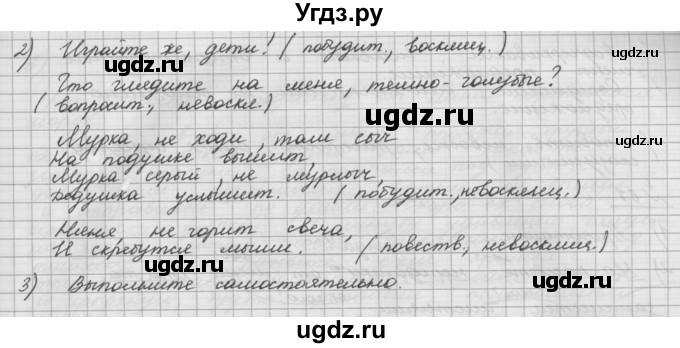 Угдз.ру
2) Играйте же, дети! (побудит., восклиц.)
Что глядите на меня, темно-голубые?
(вопросит., невоскл.)
ugdz.ru ugdz.ru
Мурка, не ходи, там сыч
На подушке вышит,
Мурка серый, не мурлычь,
Дедушка услышит. (побудит., невосклиц.)
ugdz.ru
Няня не горит свеча,
И скребутся мыши. (повеств., невосклиц.)
ugdz.ru ugdz.ru
3) Выполните самостоятельно.
ugdz.ru ugdz.ru